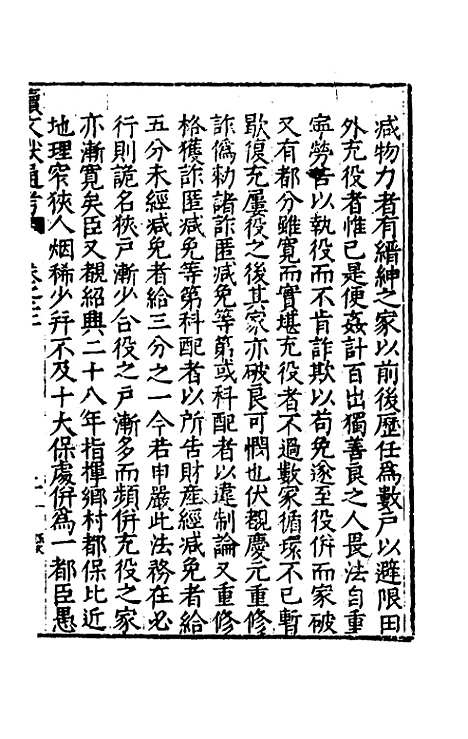 减物力者有縉紳之家以前後歷任爲數戸以避限田
外充役者惟已是便姦計百出獨善良之人畏法自重
寜勞苦以執役而不肯詐欺以苟免遂至役併而家破
又有都分雖寛而實堪充役者不過數家循環不已暫
歇復充屢役之後其家亦破良可憫也伏覩慶元重修
詐僞勑諸詐匿减免等第或科配者以違制論又重修
格獲詐匿减免等第科配者以所告財産經减免者給
五分未經减免者給三分之一今若申嚴此法務在必
行則詭名狹戸漸少合役之戸漸多而頻併充役之家
亦漸寛矣臣又覩紹興二十八年指揮鄉村都保比近
地理窄狹人烟稀少幷不及十大保處併爲一都臣愚
續文獻通考 卷之二